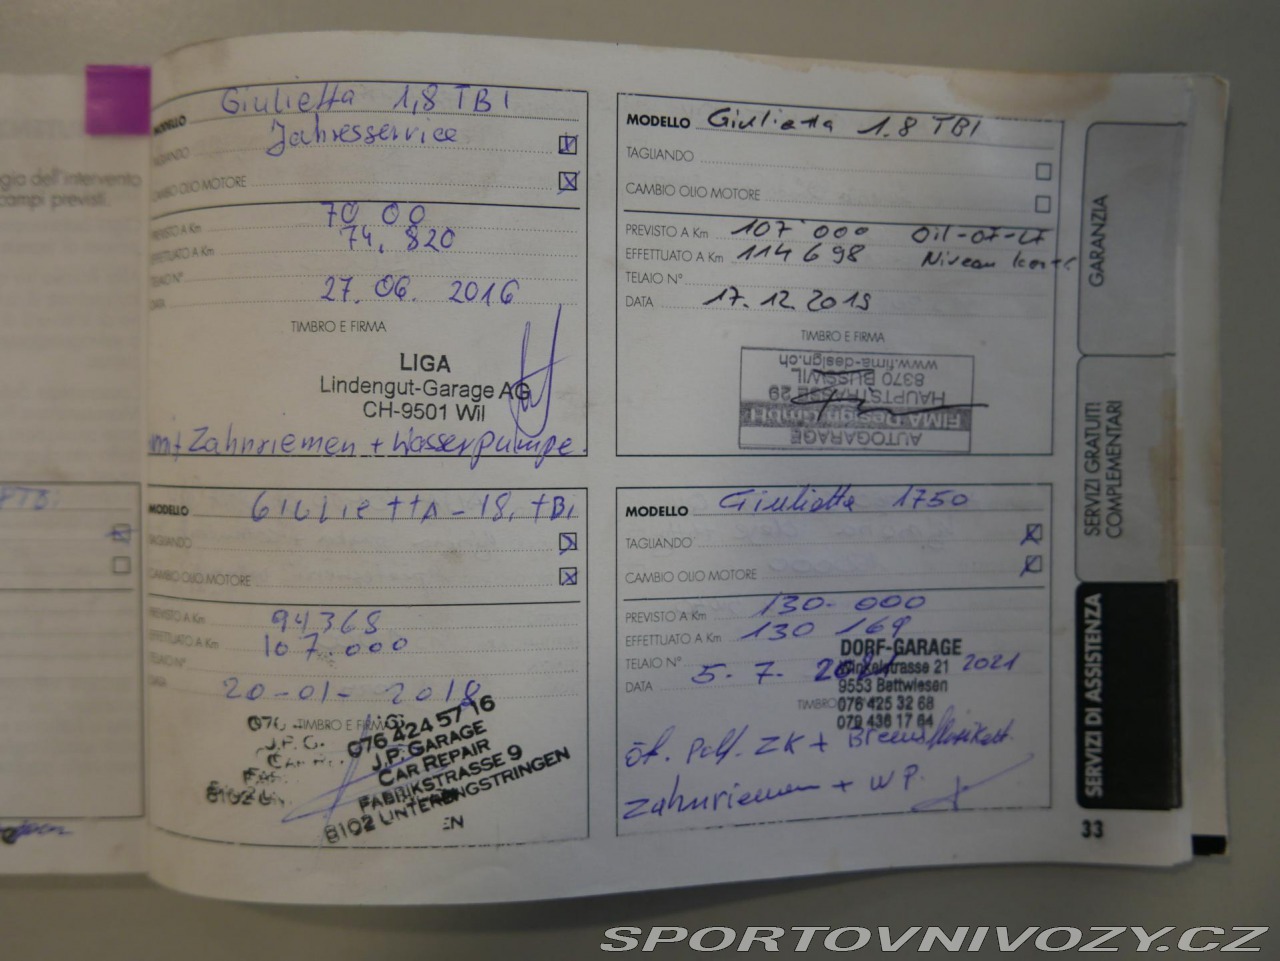 gio dell'intervento
campi previsti.
MODELLO Giulietta 1,8 TBI
Jahresservice
TAGLIANDO
CAMBIO OLIO MOTORE
PREVISTO A Km 70.00
EFFETTUATO A Km 74.820
TELAIO N°
DATA 27.06. 2016
TIMBRO E FIRMA
LIGA
Lindengut-Garage AG
CH-9501 Wil
mit Zahnriemen + Wasserpumpe.
MODELLO Giulietta 1.8 TBI
TAGLIANDO
CAMBIO OLIO MOTORE
PREVISTO A Km 107'000
EFFETTUATO A Km 114698 Niveau
TELAIO N°
DATA 17.12.2019
TIMBRO E FIRMA
AUTOGARAGE
FIMA Design GmbH
HAUPTSTRASSE 29
8370 BUSSWIL
www.fima-design.ch
MODELLO GIULIettA - 18. tBi
TAGLIANDO
CAMBIO OLIO MOTORE
PREVISTO A Km 94368
EFFETTUATO A Km 107.000
TELAIO N°
DATA 20-01-2018
TIMBRO E FIRMA
076 424 57 16
J.P. GARAGE
CAR REPAIR
FABRIKSTRASSE 9
8102 UNTERENGSTRINGEN
MODELLO Giulietta 1750
TAGLIANDO
CAMBIO OLIO MOTORE
PREVISTO A Km 130.000
EFFETTUATO A Km 130 169
TELAIO N°
DATA 5.7. 2021
DORF-GARAGE
Winkelstrasse 21
9553 Bettwiesen
076 425 32 68
079 436 17 64
ZK +
Zahnriemen + WP.
GARANZIA
SERVIZI GRATUITI
COMPLEMENTARI
SERVIZI DI ASSISTENZA
33
SPORTOVNIVOZY.CZ